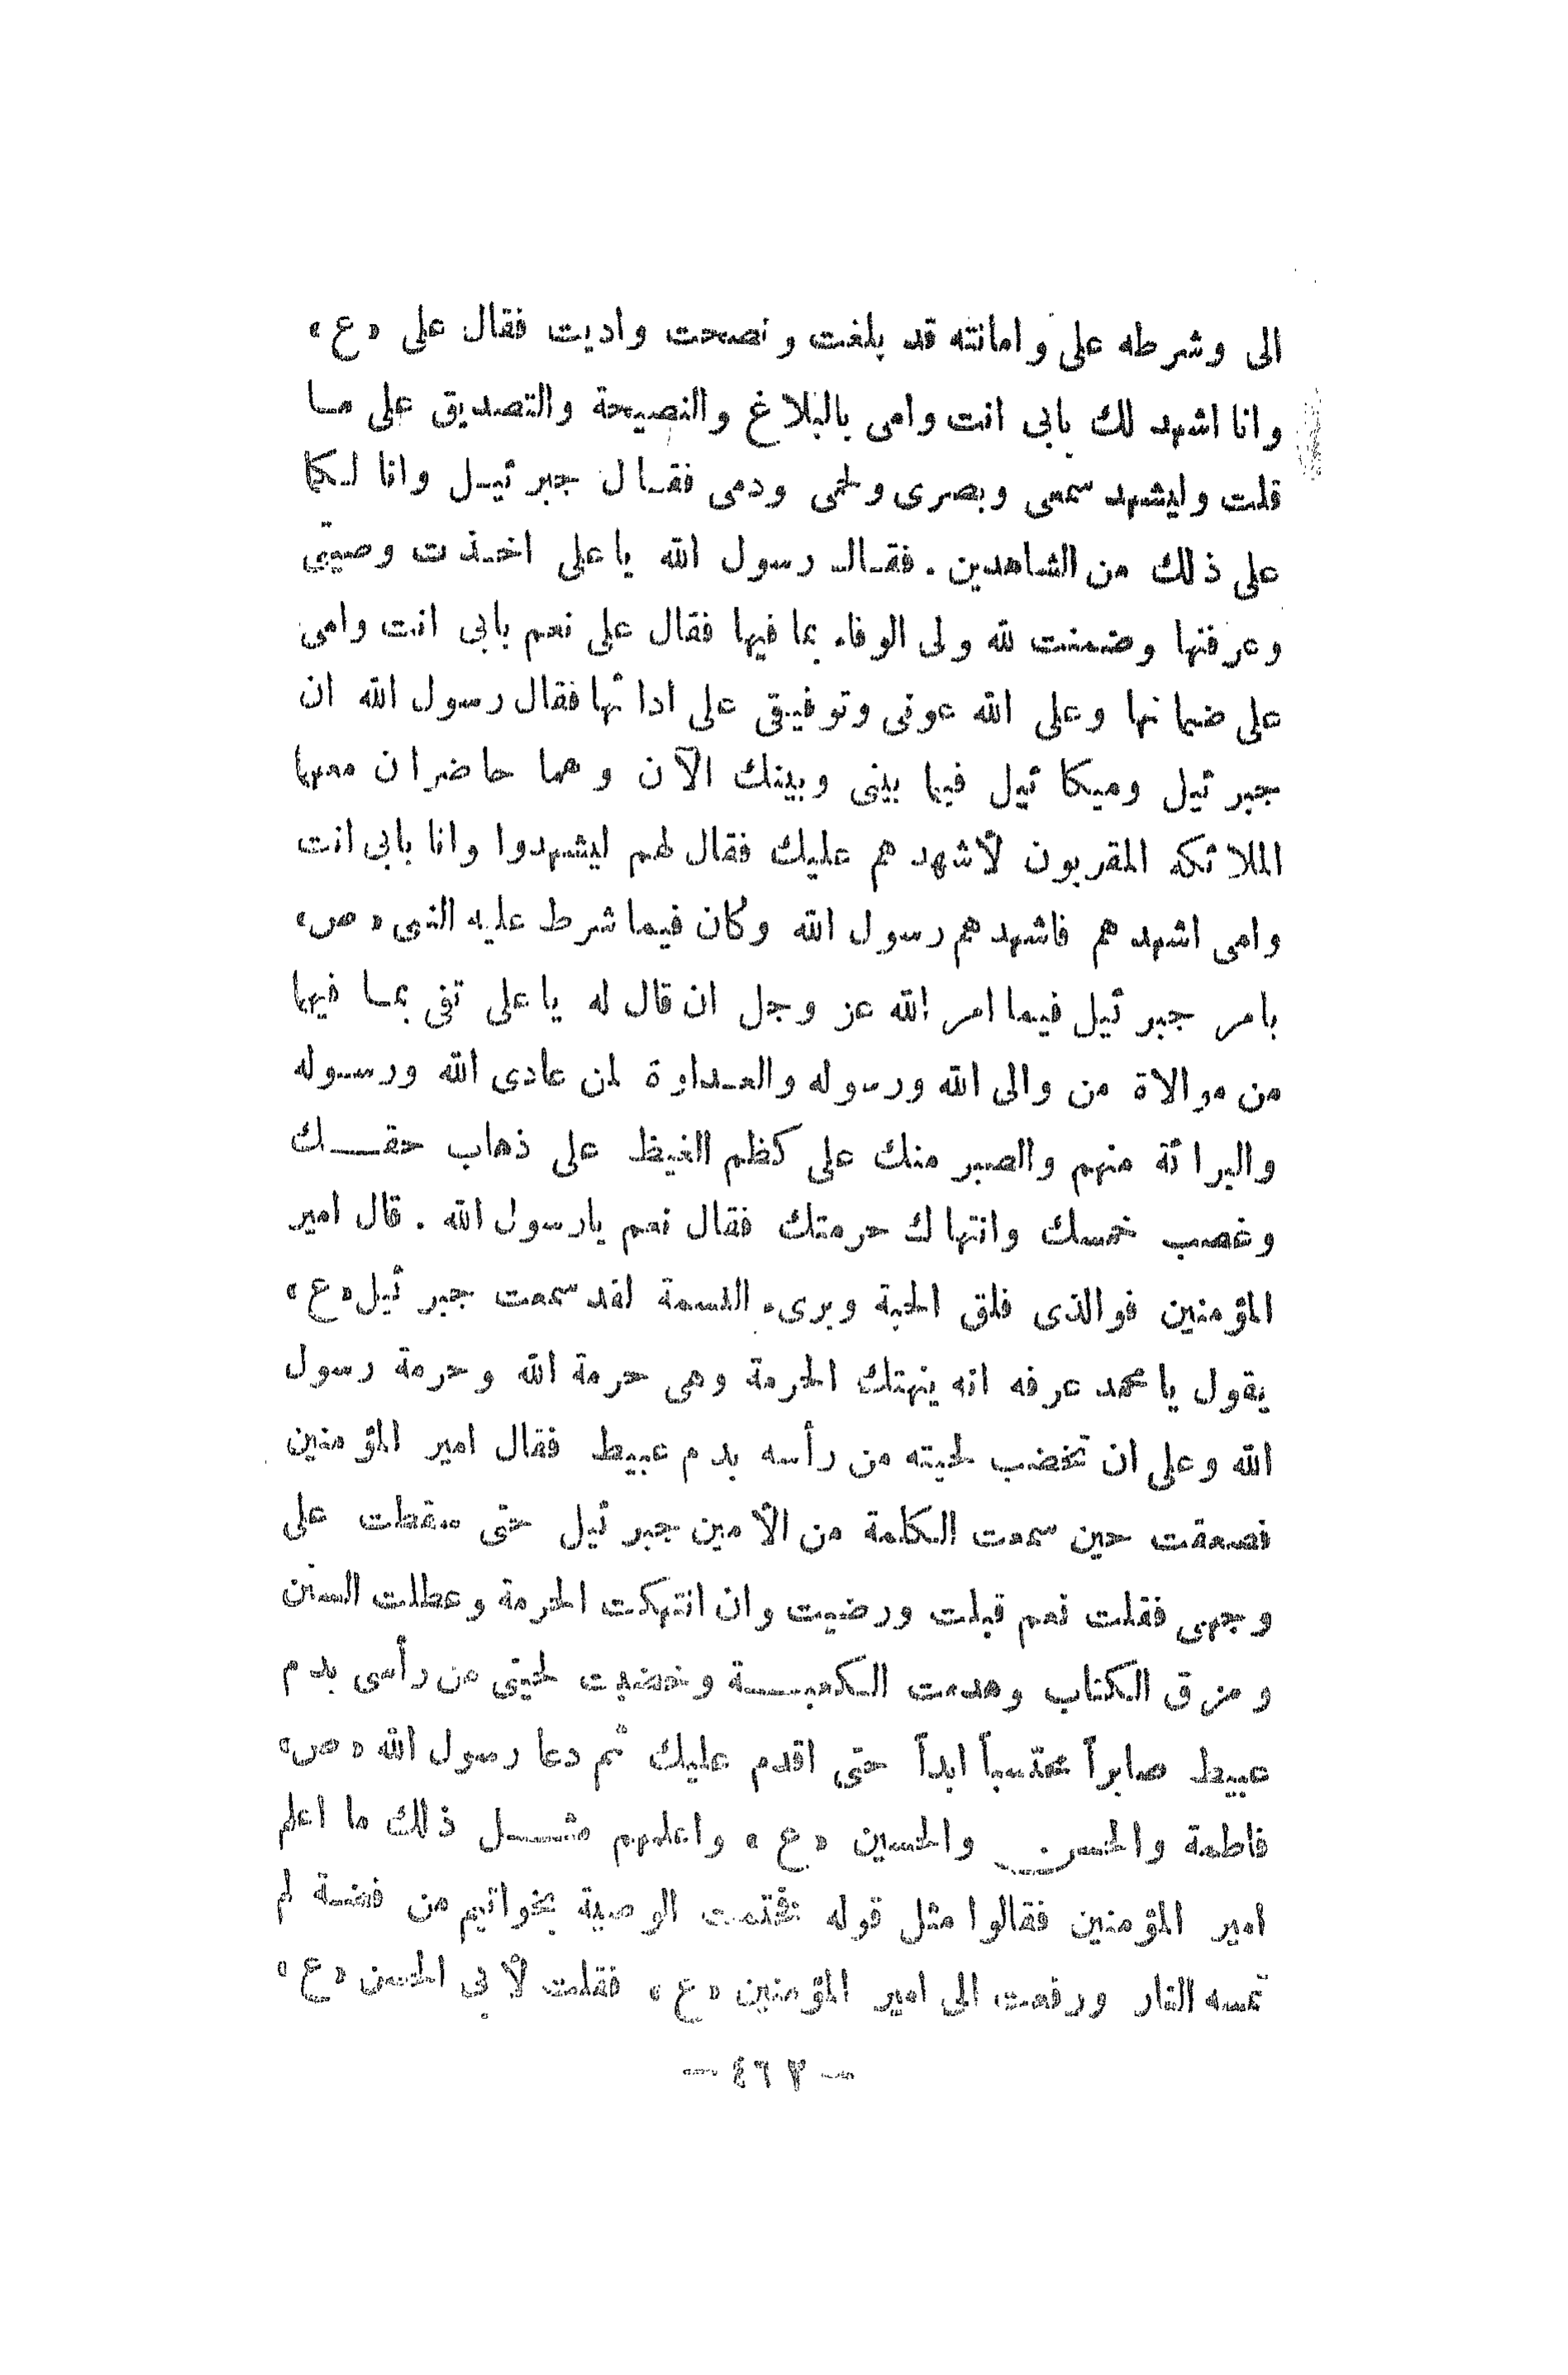 الى وشرطه على وامانته قد بلغت ونصحت واديت فقال على «ع»
وانا اشهد لك بابى انت وامى بالبلاغ والنصيحة والتصديق على مـا
قلت وليشهد سمعى وبصرى ولحمى ودمى فقـال جبرئيـل وانا لـكما
على ذلك من الشاهدين . فقـال رسول الله ياعلى اخـذت وصيتى
وعرفتها وضمنت لله ولى الوفاء بما فيها فقال على نعم بابى انت وامى
على ضمانها وعلى الله عونى وتوفيقى على ادائها فقال رسول الله ان
جبرئيل وميكائيل فيما بينى وبينك الآن وهما حاضران معهما
الملائكه المقربون لأشهدهم عليك فقال لهم ليشهدوا وانا بابى انت
وامى اشهدهم فاشهدهم رسول الله وكان فيما شرط عليه النبى «ص»
بامر جبرئيل فيما امر الله عز وجل ان قال له ياعلى تفى بمـا فيها
من موالاة من والى الله ورسوله والعـداوة لمن عادى الله ورسـوله
والبرائة منهم والصبر منك على كظم الغيظ على ذهاب حقــك
وغصب خمسك وانتهاك حرمتك فقال نعم يارسول الله . قال امير
المؤمنين فوالذى فلق الحبة وبرىء النسمة لقد سمعت جبرئيل «ع»
يقول يامحمد عرفه انه ينهتك الحرمة وهى حرمة الله وحرمة رسول
الله وعلى ان تخضب لحيته من رأسه بدم عبيط فقال امير المؤمنين
فصعقت حين سمعت الكلمة من الأمين جبرئيل حتى سقطت على
وجهى فقلت نعم قبلت ورضيت وان انتهكت الحرمة وعطلت السنن
ومزق الكتاب وهدمت الـكعبــة وخضبت لحيتى من رأسى بدم
عبيط صابراً محتسباً ابداً حتى اقدم عليك ثم دعا رسول الله «ص»
فاطمة والحسن والحسين «ع» واعلمهم مثــل ذلك ما اعلم
امير المؤمنين فقالوا مثل قوله فختمت الوصية بخواتيم من فضـة لم
تمسه النار ورفعت الى امير المؤمنين «ع» فقلت لأبى الحسن «ع»
— ٤٦٧ —